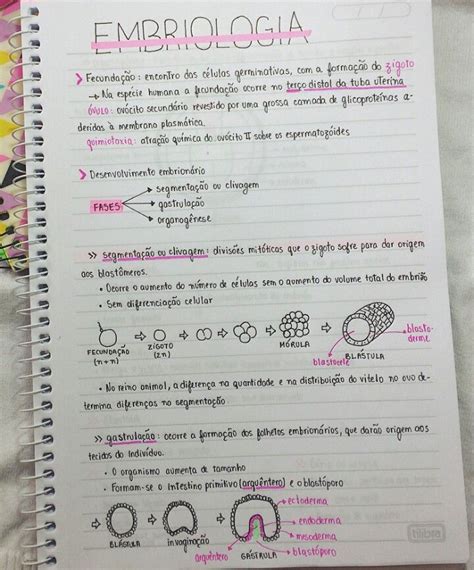 EMBRIOLOGIA
> Fecundação: encontro das células germinativas, com a formação do zigoto
→ Na espécie humana a fecundação ocorre no terço distal da tuba uterina
ÓVULO: ovócito secundário revestido por uma grossa camada de glicoproteínas a-
deridas à membrana plasmática.
quimiotaxia: atração química do ovócito II sobre os espermatozóides
> Desenvolvimento embrionário
FASES → segmentação ou clivagem
→ gastrulação
→ organogênese
>> segmentação ou clivagem: divisões mitóticas que o zigoto sofre para dar origem
aos blastômeros.
• Ocorre o aumento do número de células sem o aumento do volume total do embrião
• Sem diferenciação celular
FECUNDAÇÃO
(n+n)
ZÍGOTO
(2n)
MÓRULA
blastocele
BLÁSTULA
blasto-
derme
• No reino animal, a diferença na quantidade e na distribuição do vitelo no ovo de-
termina diferenças na segmentação
>> gastrulação: ocorre a formação dos folhetos embrionários, que darão origem aos
tecidos do indivíduo.
• O organismo aumenta de tamanho
• Formam-se o intestino primitivo (arquêntero) e o blastóporo
BLÁSTULA
invaginação
arquêntero
GÁSTRULA
ectoderma
endoderma
mesoderma
blastóporo
tilibra